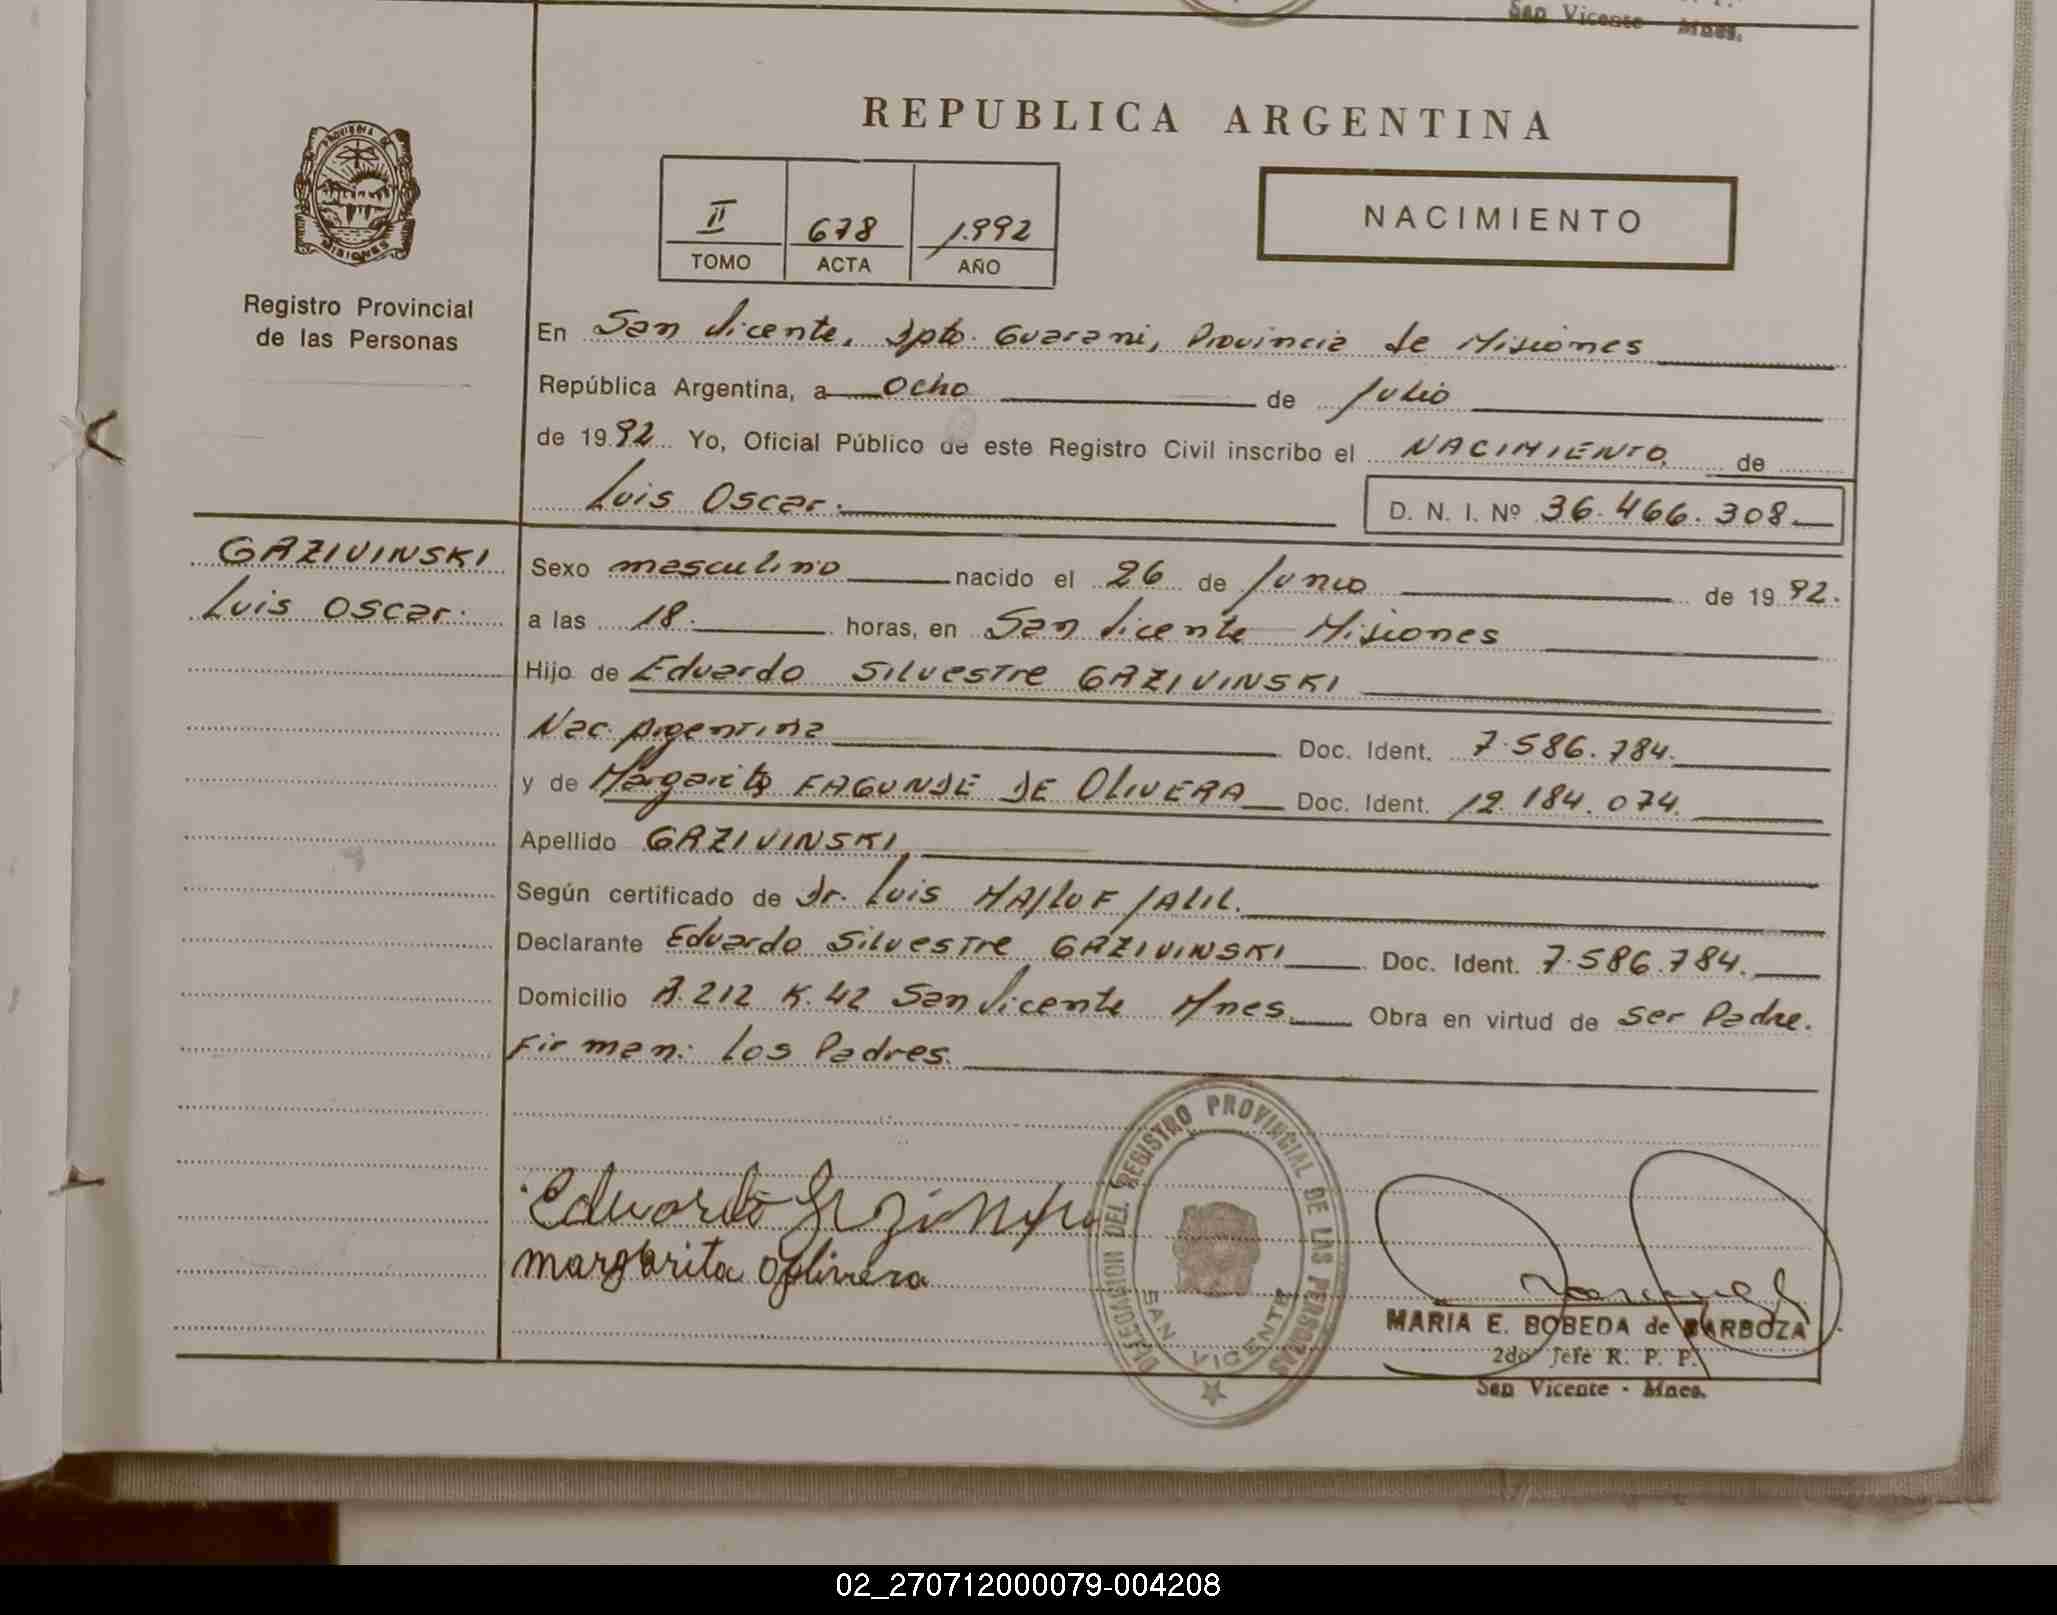 San Vicente Mnes.
REPUBLICA ARGENTINA
PROVINCIA DE
MISIONES
II 678 1.992
TOMO ACTA AÑO
NACIMIENTO
Registro Provincial
de las Personas
En San Vicente, Dpto. Guarani, Provincia de Misiones
República Argentina, a Ocho de Julio
de 1992 Yo, Oficial Público de este Registro Civil inscribo el NACIMIENTO de
Luis Oscar.
D. N. I. Nº 36.466.308
GAZIVINSKI
Luis Oscar.
Sexo masculino nacido el 26 de Junio de 1992.
a las 18. horas, en San Vicente Misiones
Hijo de Eduardo Silvestre GAZIVINSKI
Nac. Argentina Doc. Ident. 7.586.784.
y de Margarita FAGUNDE DE OLIVERA Doc. Ident. 12.184.074.
Apellido GAZIVINSKI
Según certificado de Dr. Luis MAJLUF JALIL.
Declarante Eduardo Silvestre GAZIVINSKI Doc. Ident. 7.586.784.
Domicilio R.212 K.42 San Vicente Mnes. Obra en virtud de ser Padre.
Firman: Los Padres.
Eduardo
margarita
DELEGACION DEL REGISTRO PROVINCIAL DE LAS PERSONAS
SAN VICENTE
MARIA E. BOBEDA de BARBOZA
2do Jefe R. P. P.
San Vicente - Mnes.
02_270712000079-004208